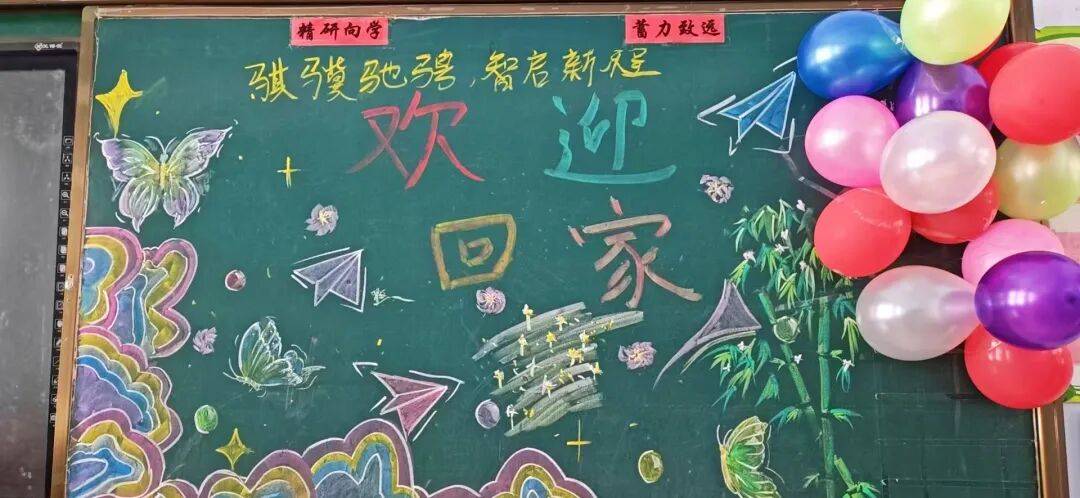 精研向学 蓄力致远
骐骥驰骋,智启新程
欢迎
回家